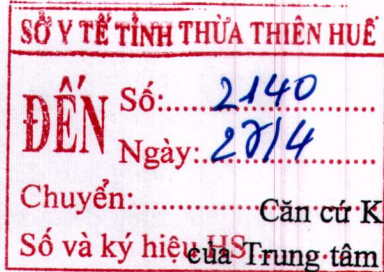 SỞ Y TẾ TỈNH THỪA THIÊN HUẾ
ĐẾN
Số: 2140
Ngày: 27/4
Chuyển:
Căn cứ K
Số và ký hiệu HS
của Trung tâm